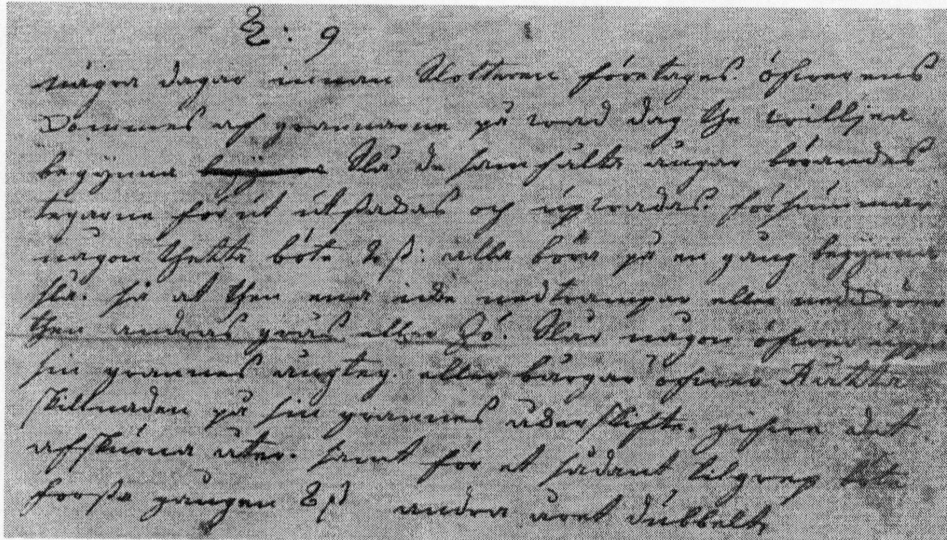 §: 9
några dagar innan Slotteren företages. öfwerens
Dommes af grannarne på wad dag the willjea
begynna begynna Slå de samfälta ängar börandes
tegarne förut utstadas och upwadas. försummar
någon thetta böte 2 ß: alla böra på en gång begynna
slå. så at then ena icke nedtrampar eller
then andras gräs eller hö. Slår någon öfwer uppå
sin grannes ängteg. eller bärgar öfwer Rätta
skillnaden på sin grannes åkerskifte. gifwe det
afskurna åter. samt för et sådant tilgrep böte
första gången 2 ß andra året dubbelt